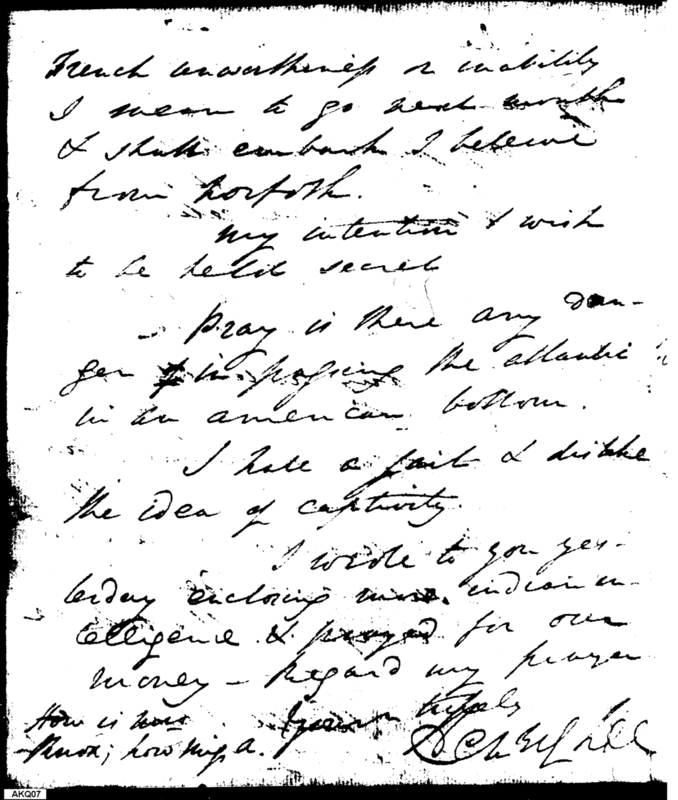 French unworthiness or inability
I mean to go next month
& shall embark I believe
from Norfolk.
my intention I wish
to be held secret
– Pray is there any dan-
ger in passing the atlantic
in an american bottom.
I hate a goal & dislike
the idea of captivity.
I wrote to you yes-
terday enclosing more indian in-
telligence & prayed for our
money – Regard my prayer
How is
Knox; how
AKQ07